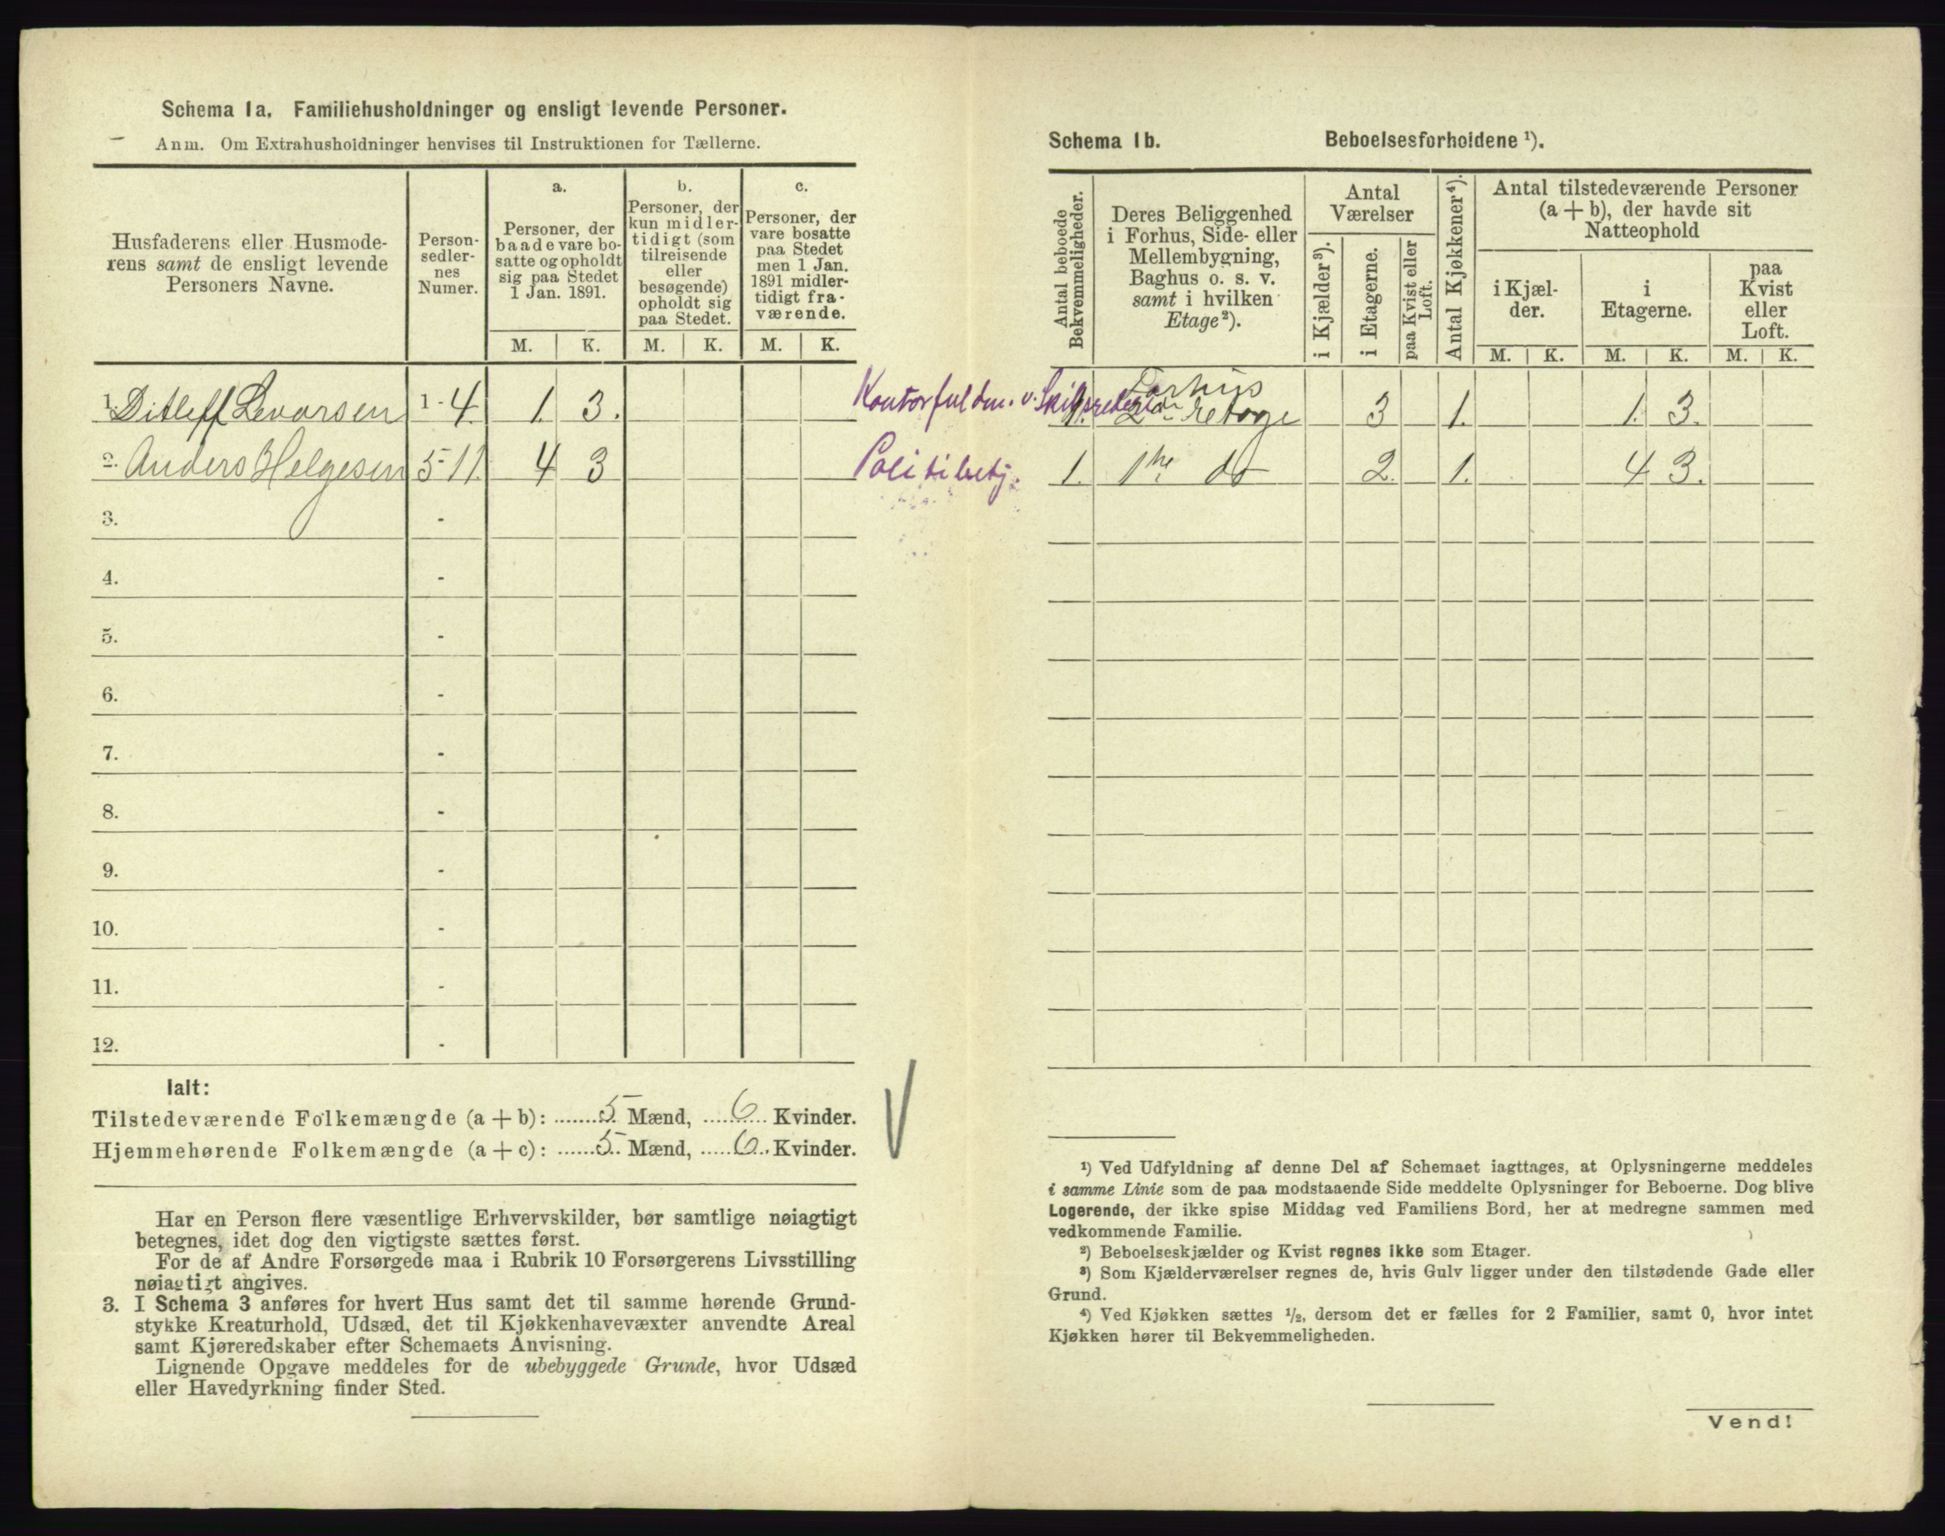 Schema 1a. Familiehusholdninger og ensligt levende Personer.
Anm. Om Extrahusholdninger henvises til Instruktionen for Tællerne.
Husfaderens eller Husmode-
rens samt de ensligt levende
Personers Navne.
Person-
sedler-
nes
Numer.
a.
Personer, der
baade vare bo-
satte og opholdt
sig paa Stedet
1 Jan. 1891.
b.
Personer, der
kun midler-
tidigt (som
tilreisende
eller
besøgende)
opholdt sig
paa Stedet.
c.
Personer, der
vare bosatte
paa Stedet
men 1 Jan.
1891 midler-
tidigt fra-
værende.
M. K. M. K. M. K.
1. Ditleff Levorsen 1-4 1. 3.
2. Anders Helgesen 5-11. 4 3
3. -
4. -
5. -
6. -
7. -
8. -
9. -
10. -
11. -
12. -
Ialt:
Tilstedeværende Folkemængde (a + b): 5 Mænd, 6 Kvinder.
Hjemmehørende Folkemængde (a + c): 5 Mænd, 6 Kvinder.
Har en Person flere væsentlige Erhvervskilder, bør samtlige nøiagtigt
betegnes, idet dog den vigtigste sættes først.
For de af Andre Forsørgede maa i Rubrik 10 Forsørgerens Livsstilling
nøiagtigt angives.
3. I Schema 3 anføres for hvert Hus samt det til samme hørende Grund-
stykke Kreaturhold, Udsæd, det til Kjøkkenhavevæxter anvendte Areal
samt Kjøreredskaber efter Schemaets Anvisning.
Lignende Opgave meddeles for de ubebyggede Grunde, hvor Udsæd
eller Havedyrkning finder Sted.
Schema 1b. Beboelsesforholdene ¹).
Antal beboede
Bekvemmeligheder.
Deres Beliggenhed
i Forhus, Side- eller
Mellembygning,
Baghus o. s. v.
samt i hvilken
Etage²).
Antal
Værelser
i Kjælder³).
i Etagerne.
paa Kvist eller
Loft.
Antal Kjøkkener⁴).
Antal tilstedeværende Personer
(a + b), der havde sit
Natteophold
i Kjæl-
der.
i
Etagerne.
paa
Kvist
eller
Loft.
M. K. M. K. M. K.
Kontorfuldm. v. Skibsrederi 1. Forhus
2den Etage 3 1. 1. 3.
Politibetj. 1. 1ste do 2. 1. 4 3.
¹) Ved Udfyldning af denne Del af Schemaet iagttages, at Oplysningerne meddeles
i samme Linie som de paa modstaaende Side meddelte Oplysninger for Beboerne. Dog blive
Logerende, der ikke spise Middag ved Familiens Bord, her at medregne sammen med
vedkommende Familie.
²) Beboelseskjælder og Kvist regnes ikke som Etager.
³) Som Kjælderværelser regnes de, hvis Gulv ligger under den tilstødende Gade eller
Grund.
⁴) Ved Kjøkken sættes ½, dersom det er fælles for 2 Familier, samt 0, hvor intet
Kjøkken hører til Bekvemmeligheden.
Vend!